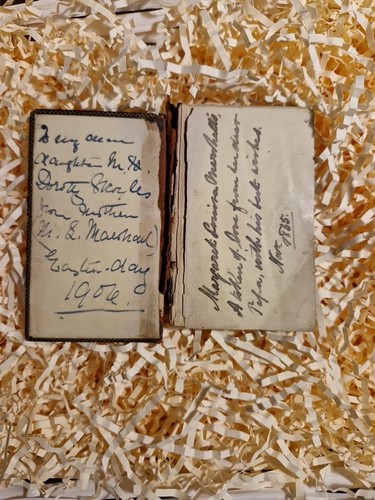 To my dear
daughter M. D.
Dorothy
from Mother
M. L. Marshall
Easter-day
1906.
Margaret Marshall,
A token of love from her dear
Papa, with his best wishes.
Nov. 1865.